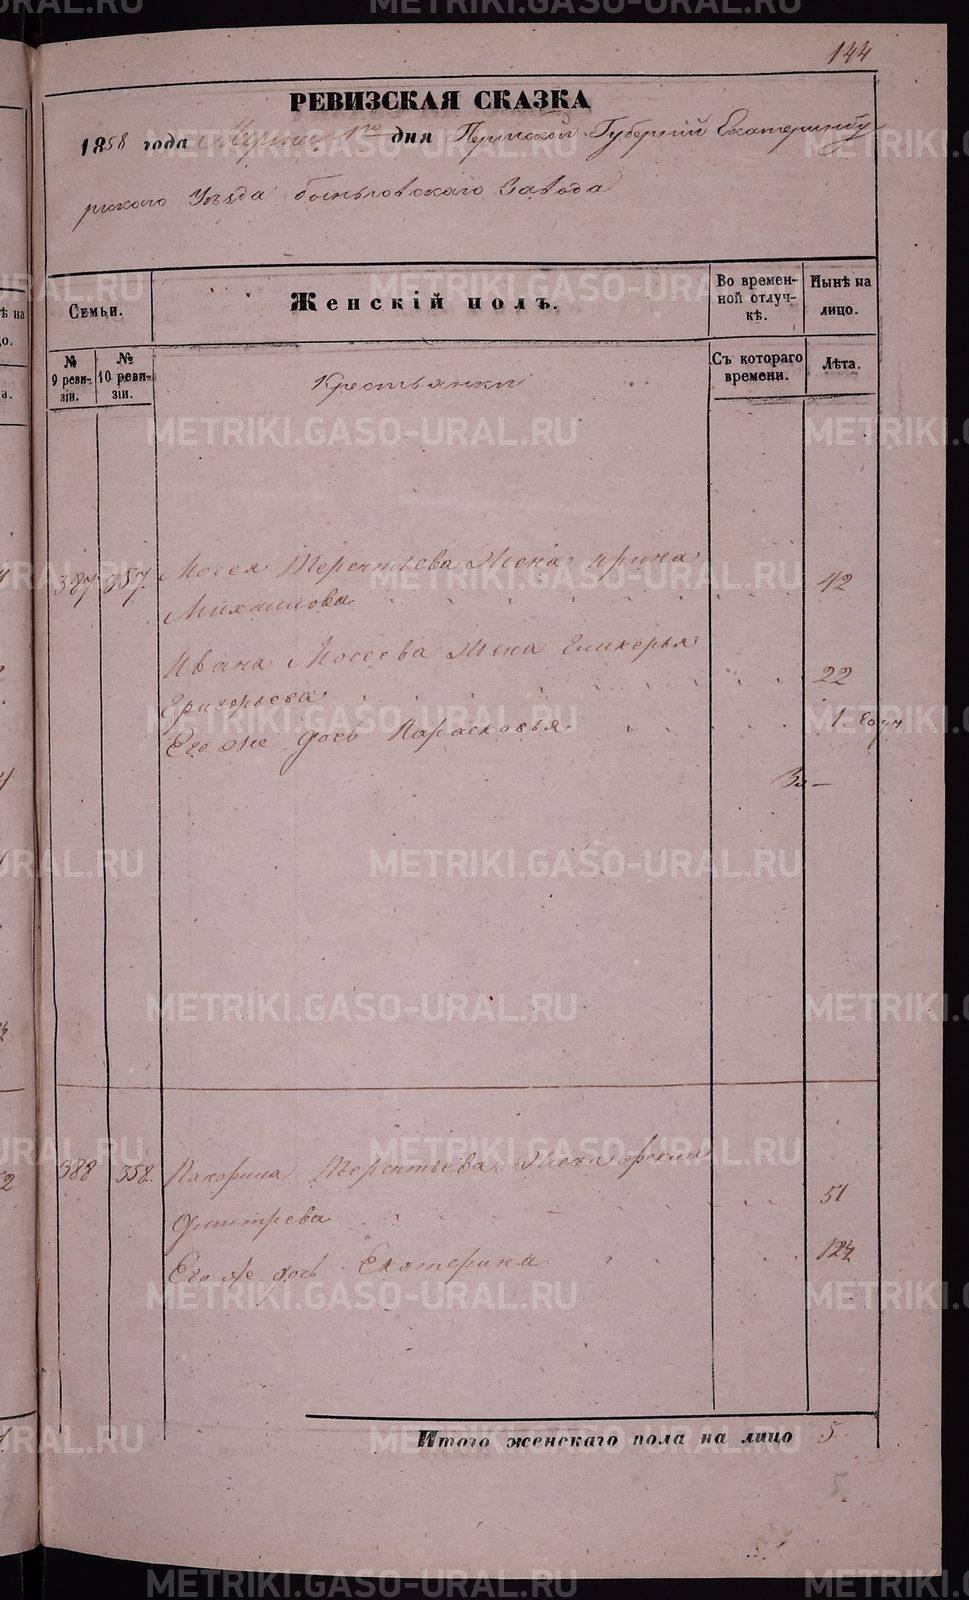 144
РЕВИЗСКАЯ СКАЗКА
1858 года Марта 1го дня Пермской Губерніи Екатеринбу
ргского Уѣзда Быньговского Завода
Семьи.
Женскій полъ.
Во времен-
ной отлуч-
кѣ.
Нынѣ на
лицо.
№
9 реви-
зіи.
№
10 реви-
зіи.
Съ котораго
времени.
Лѣта.
Крестьянки
387 357 Мосея Терентьева Жена Ирина
Михаилова 42
Ивана Мосеева Жена Гликерья
Григорьева 22
Его же дочь Парасковья 1. годъ
3
388 358. Терентьева Жена
Дмитрева 51
Его же дочь Екатерина 12½
Итого женскаго пола на лицо 5
5
METRIKI.GASO-URAL.RU